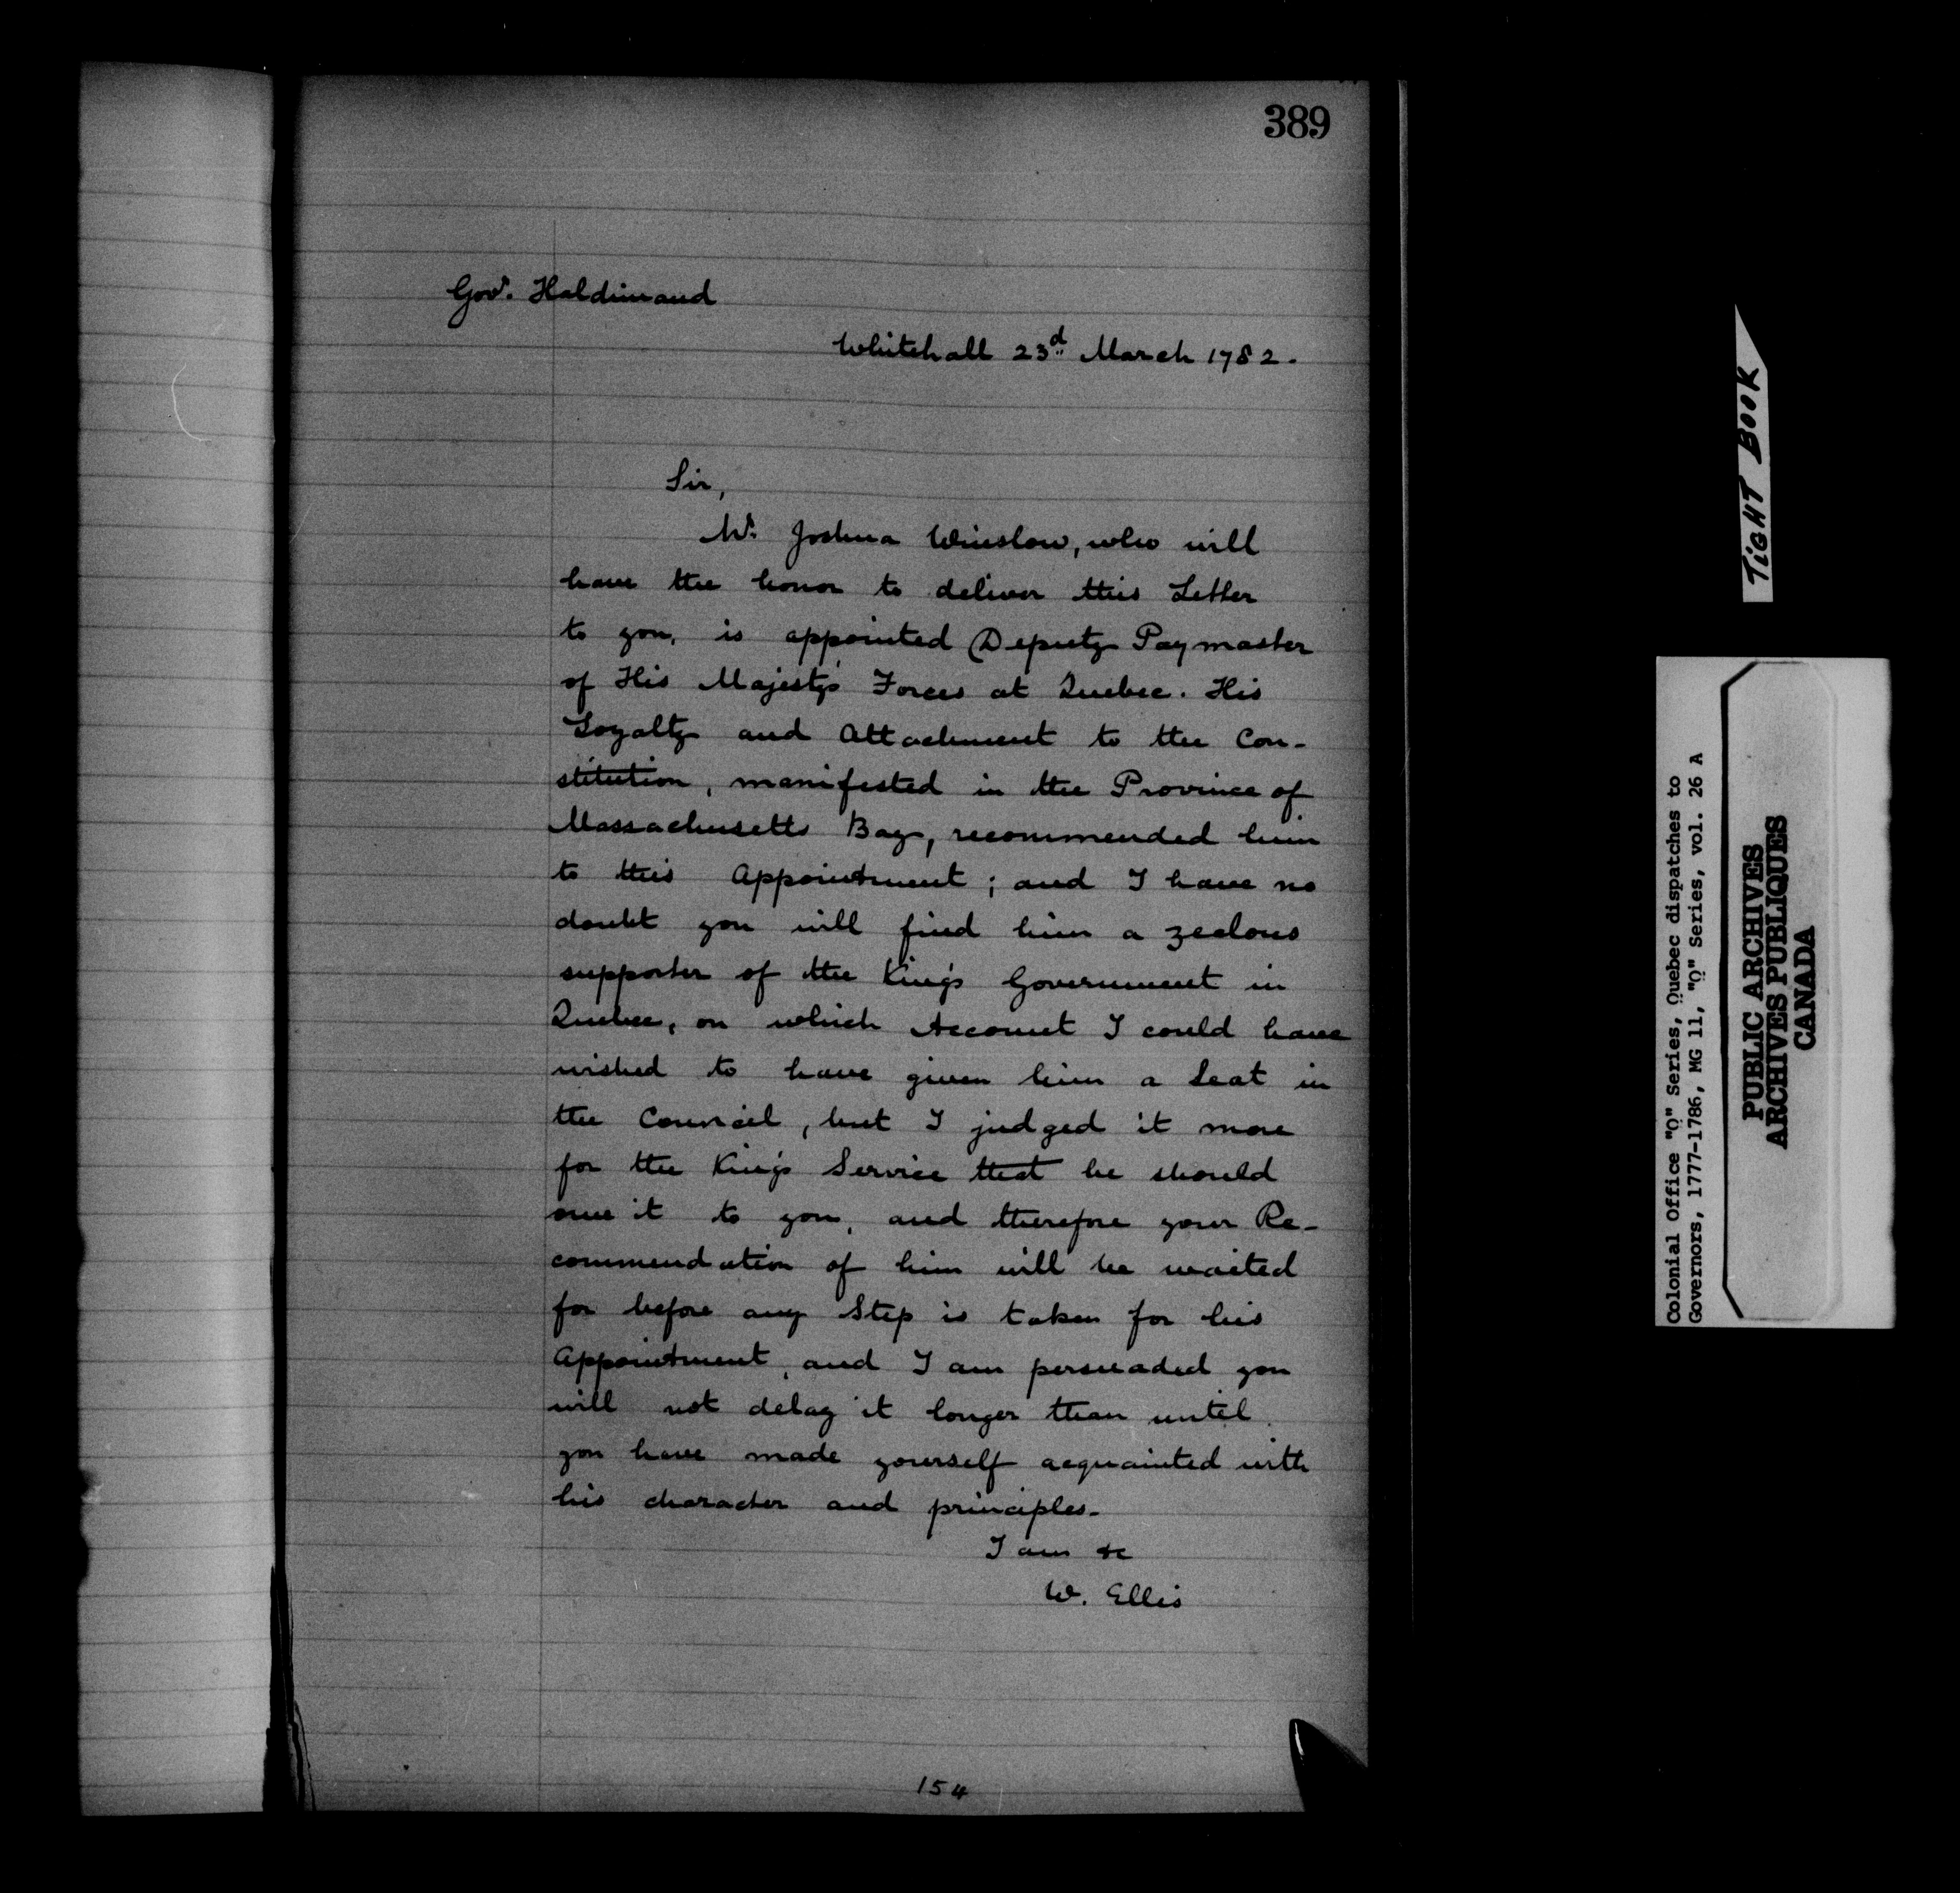 389
Govr. Haldimand
Whitehall 23d March 1782.
Sir,
Mr. Joshua Winslow, who will
have the honor to deliver this Letter
to you, is appointed Deputy Paymaster
of His Majesty's Forces at Quebec. His
Loyalty and Attachment to the Con-
stitution, manifested in the Province of
Massachusetts Bay, recommended him
to this Appointment; and I have no
doubt you will find him a zealous
supporter of the King's Government in
Quebec, on which Account I could have
wished to have given him a Seat in
the Council, but I judged it more
for the King's Service that he should
owe it to you, and therefore your Re-
commendation of him will be waited
for before any Step is taken for his
Appointment, and I am persuaded you
will not delay it longer than until
you have made yourself acquainted with
his character and principles.
I am &c
W. Ellis
154
TIGHT BOOK
Colonial Office "Q" Series, Quebec dispatches to
Governors, 1777-1786, MG 11, "Q" Series, vol. 26 A
PUBLIC ARCHIVES
ARCHIVES PUBLIQUES
CANADA